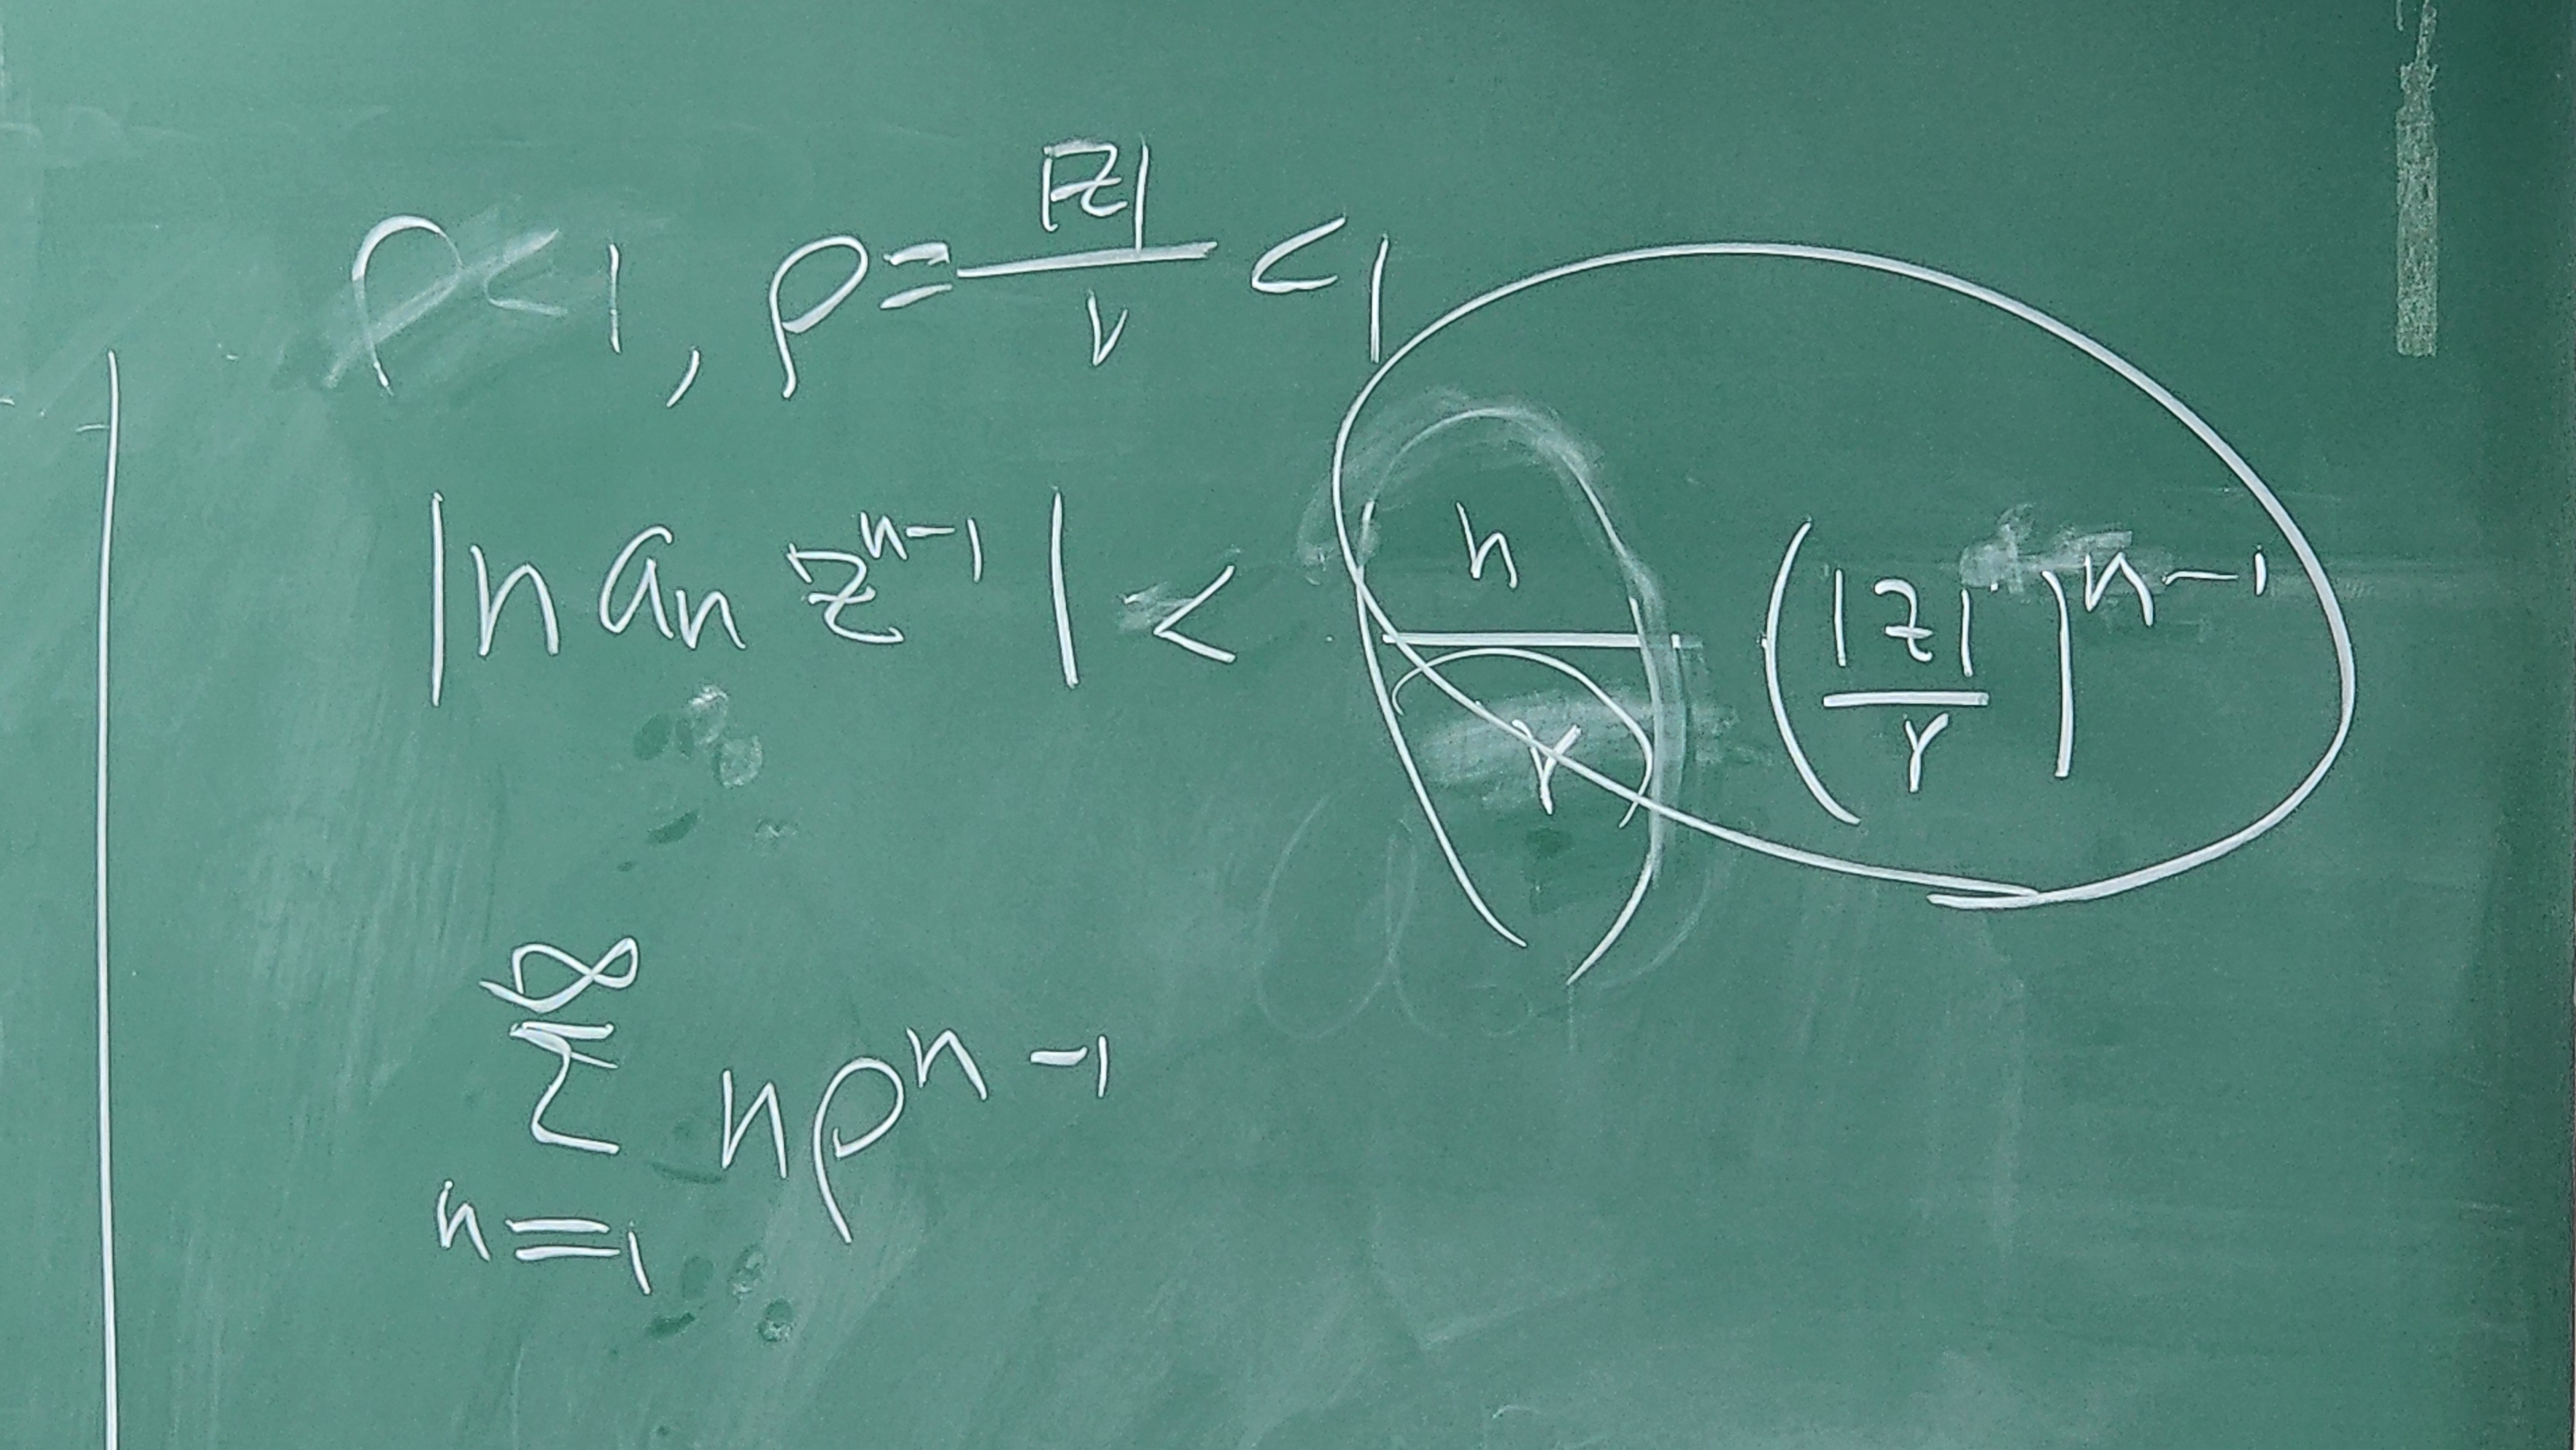 ρ < 1, ρ = |z|/r < 1
|n aₙ zⁿ⁻¹| < n/r (|z|/r)ⁿ⁻¹
∑ₙ₌₁^∞ nρⁿ⁻¹